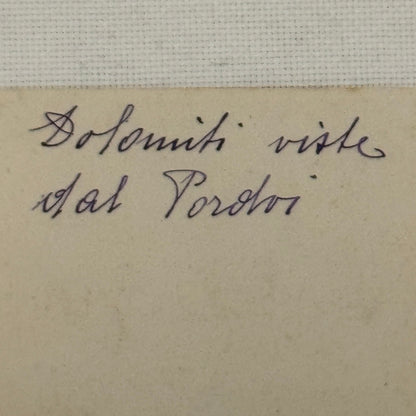 Dolomiti viste
dal Pordoi